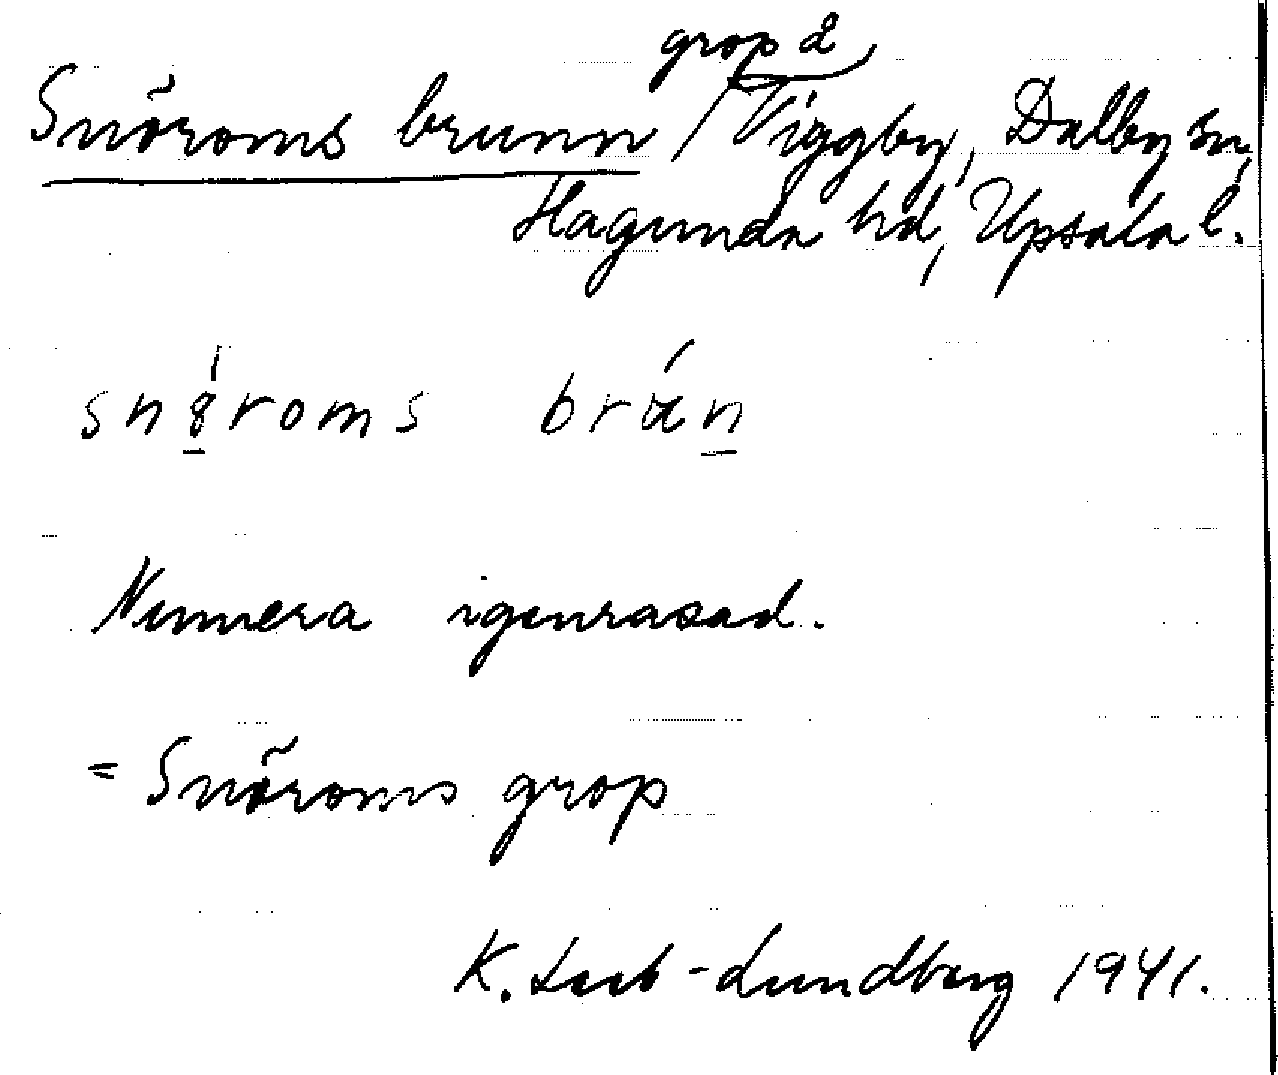 grop å
Snöroms brunn / Viggby, Dalby sn,
Hagunda hd, Upsala l.
snȣ̱́roms brán̠
Numera igenrasad.
= Snöroms grop
K. Leeb-Lundberg 1941.